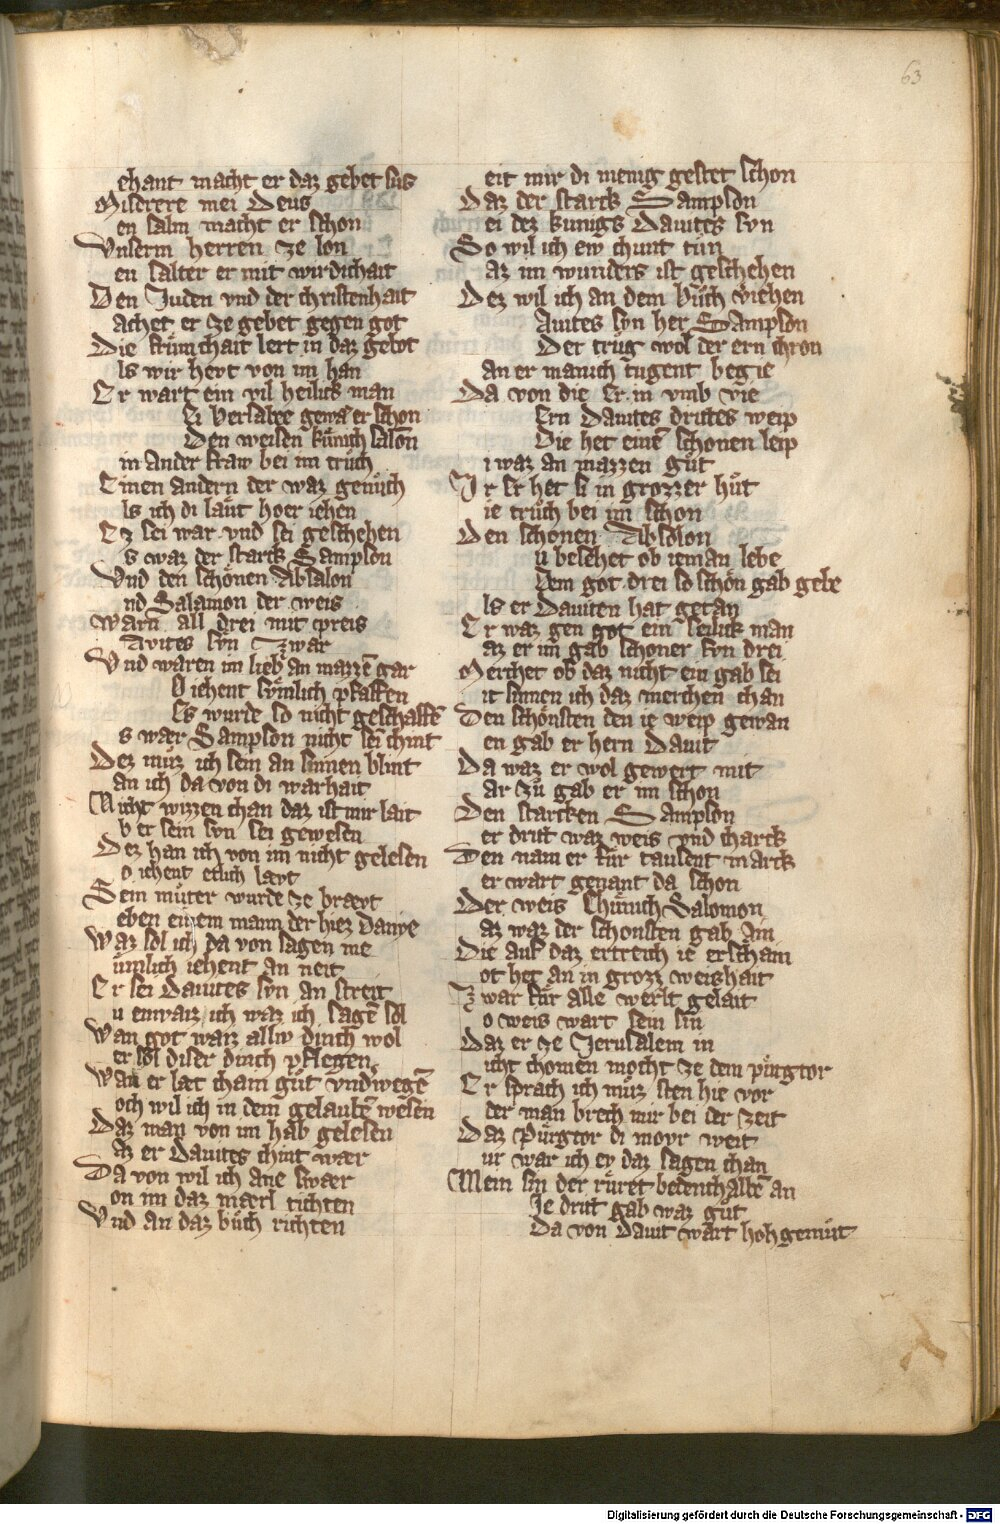 63
ehant macht er daz gebet sus
Miserere mei Deus
en salm macht er schon
Vnserm herren ze lon
en salter er mit wirdichait
Den Juden vnd der christenhait
achet er ze gebet gegen got
Die frümchait lert in daz gebot
ls wir hevt von im han
Er wart ein vil heilick man
Ei Versabee gewā er schon
Den weisen künich salōn
in ander fraw bei im trůch
Einen andern der waz genůch
ls ich di läut hoer iehen
Ez sei war vnd sei geschehen
s waz der starck Sampson
Vnd den schönen Absalon
nd Salamon der weis
Warn all drei mit preis
Auites syn Zwar
Vnd waren im lieb an mazzē gar
O iehent sümlich pfaffen
Es wurde so nicht geschaffē
s wær Sampson nicht sei chint
Dez můz ich sein an sinnen blint
an ich da von di warhait
Nicht wizzen chan daz ist mir lait
b er sein syn sei gewesen
Dez han ich von im nicht gelesen
o iehent etlich lævt
Sein můter wurde ze brævt
eben einem mann der hiez Danye
Waz sol ich da von sagen me
ümlich iehent an neit
Er sei Dauites syn an streit
u enwaiz ich waz ich sagē sol
Wan got waiz alliv dinch wol
er sol diser dinch pflegen
Wan er læt cham gůt vndwegē
och wil ich in dem gelaubē wesen
Daz man von im hab gelesen
az er Dauites chint wær
Da von wil ich ane swær
on im daz mærl tichten
Vnd an daz bůch richten
eit mir di menig gestet schon
Daz der starck Sampson
ei dez kunigs Dauites syn
So wil ich ew chunt tůn
az im wunders ist geschehen
Dez wil ich an dem bůch viehen
Auites syn her Sampson
Der trůg wol der ern chron
an er manich tugent begie
Da von die Er in vmb vie
Ern Dauites drittes weip
Die het einē schonen leip
i waz an mazzen gůt
Ir Er het si in grozzer hůt
ie trůch bei im schon
Den schonen Absolon
u besehet ob ieman lebe
Dem got drei so schön gab gebe
ls er Dauiten hat getan
Er waz gen got ein seilick man
az er im gab schoner syn drei
Merchet ob daz nicht ein gab sei
it sinnen ich daz merchen chan
Den schönsten den ie weip gewan
en gab er hern Dauit
Da waz er wol gewert mit
ar zů gab er im schon
Den starcken Sampson
er dritt waz weis vnd charck
Den nam er für tausent marck
er wart genant da schon
Der weis Chünich Salomon
az waz der schonsten gab ain
Die auf daz ertreich ie erschain
ot het an in grozz weishait
Zwar für alle werlt gelait
o weis wart sein sin
Daz er ze Jerusalem in
icht chomen mocht ze dem pürgtor
Er sprach ich můz sten hie vor
der man brech mir bei der zeit
Daz Pürgtor di movr weit
ur war ich ev daz sagen chan
Mein sin der rüret bedenthalbē an
Je dritt gab waz gůt
Da von Dauit wart hohgemůt
Digitalisierung gefördert durch die Deutsche Forschungsgemeinschaft - DFG